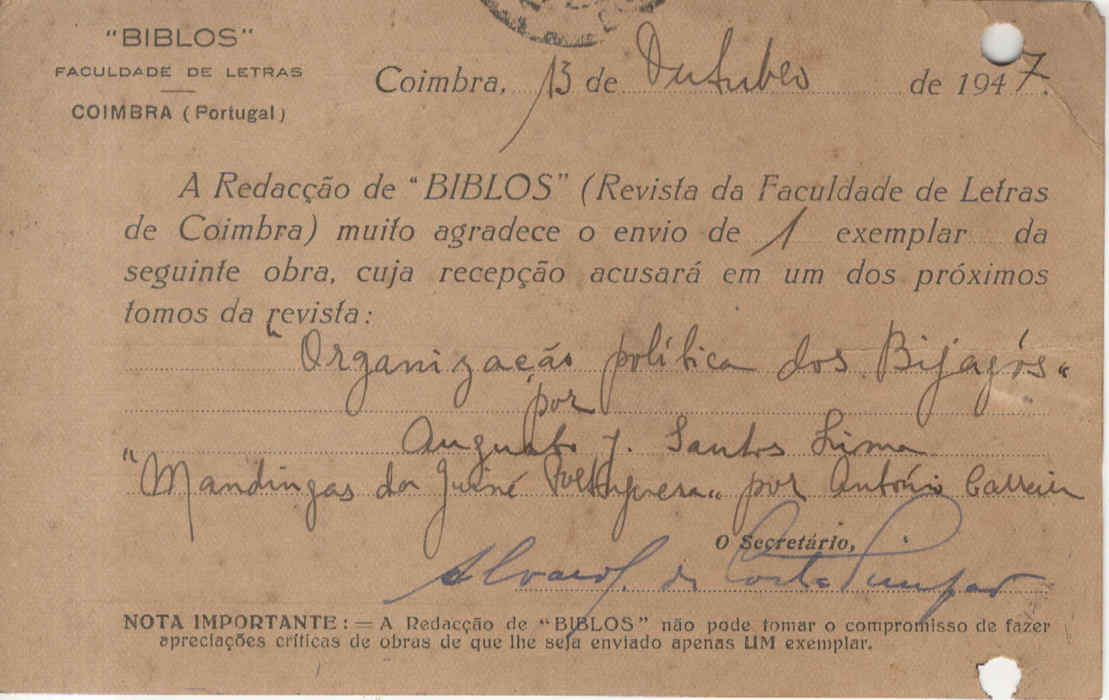 "BIBLOS"
FACULDADE DE LETRAS
COIMBRA (Portugal)
Coimbra, 13 de Outubro de 1947.
A Redacção de "BIBLOS" (Revista da Faculdade de Letras
de Coimbra) muito agradece o envio de 1 exemplar da
seguinte obra, cuja recepção acusará em um dos próximos
tomos da revista:
"Organização política dos Bijagós"
por
Augusto J. Santos Lima
"Mandingas da Guiné Portuguesa" por António Carreira
O Secretário,
Alvaro J. da Costa Pimpão
NOTA IMPORTANTE: = A Redacção de "BIBLOS" não pode tomar o compromisso de fazer
apreciações críticas de obras de que lhe seja enviado apenas UM exemplar.